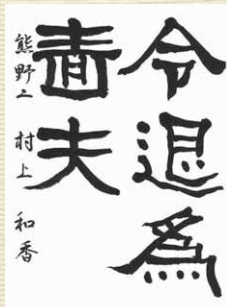 令退為
嗇夫
熊野二 村上 和香